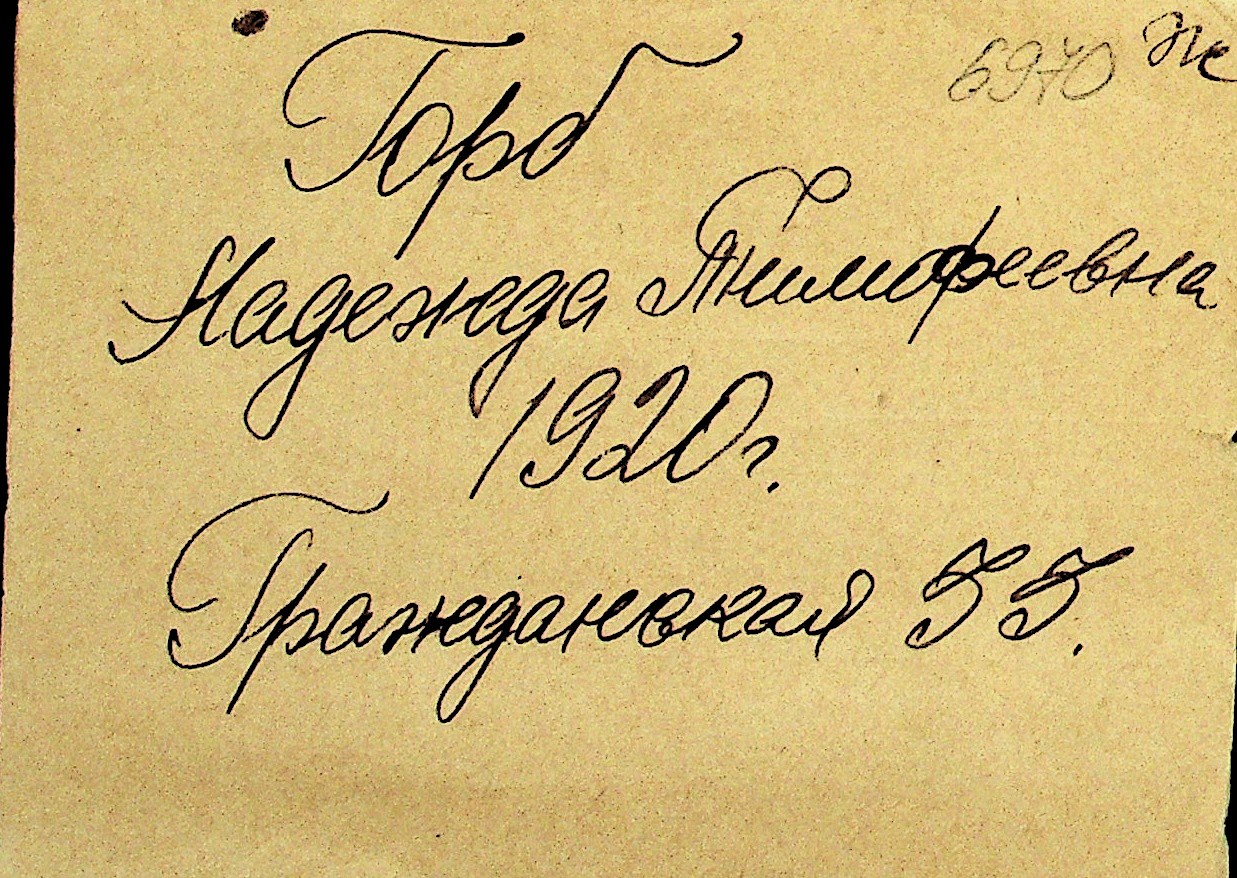 6970 Ж
Горб
Надежда Тимофеевна
1920г.
Гражданская 55.